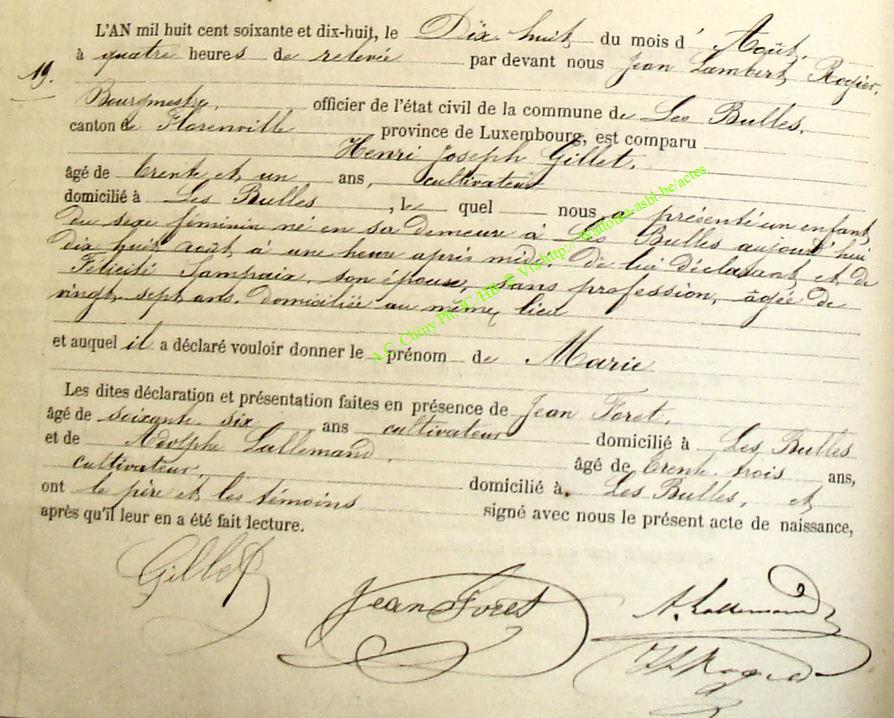 L'AN mil huit cent soixante et dix-huit, le Dix huit du mois d' Août,
à quatre heures de relevée par devant nous Jean Lambert Rogier,
19.
Bourgmestre, officier de l'état civil de la commune de Les Bulles,
canton de Florenville province de Luxembourg, est comparu
Henri Joseph Gillet,
âgé de trente et un ans, cultivateur
domicilié à Les Bulles, le quel nous a présenté un enfant
du sexe féminin né en sa demeure à Les Bulles aujourd'hui
dix huit août à une heure après midi, de lui déclarant, et de
Félicité Lampaix, son épouse, sans profession, âgée de
vingt-sept ans, domiciliée au même lieu
et auquel il a déclaré vouloir donner le prénom de Marie
Les dites déclaration et présentation faites en présence de Jean Foret,
âgé de soixante six ans cultivateur domicilié à Les Bulles
et de Adolphe Lallemand, âgé de trente-trois ans,
cultivateur, domicilié à Les Bulles, et
ont le père et les témoins signé avec nous le présent acte de naissance,
après qu'il leur en a été fait lecture.
Gillet
Jean Foret
A. Lallemand